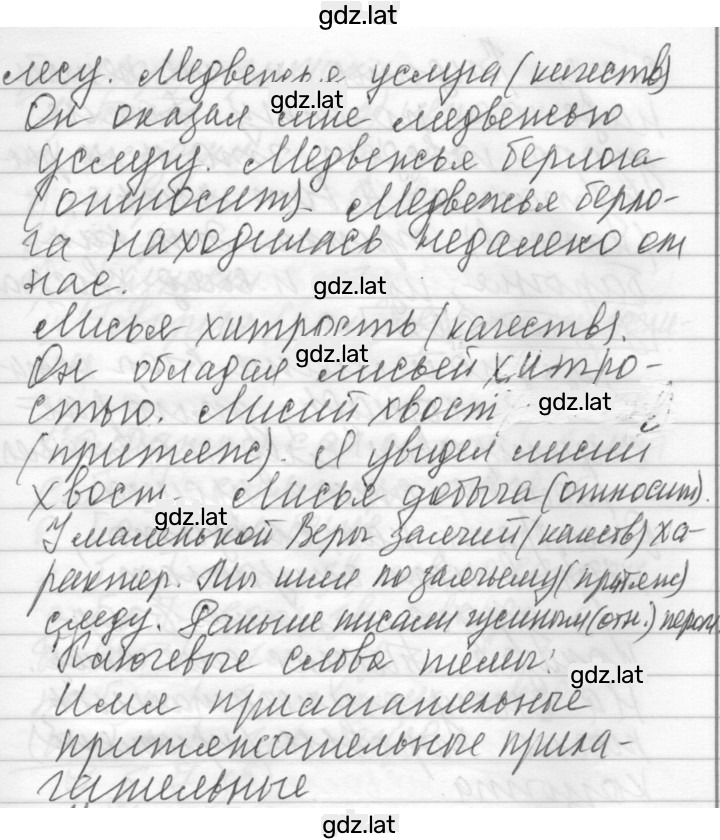 gdz.lat
лесу. Медвежья услуга (качеств)
gdz.lat
Он оказал мне медвежью
услугу. Медвежья берлога
(относит). Медвежья берло-
га находилась недалеко от
нас.
gdz.lat
Лисья хитрость (качеств).
gdz.lat
Он обладал лисьей хитро-
стью. Лисий хвост
gdz.lat
(притяж). Я увидел лисий
хвост. Лисья добыча (относит).
gdz.lat
У маленькой Веры заячий (качеств) ха-
рактер. Мы шли по заячьему (притяж)
следу. Раньше писали гусиным (отн.) пером
Ключевые слова темы:
gdz.lat
Имя прилагательные
притяжательные прила-
гательные
gdz.lat